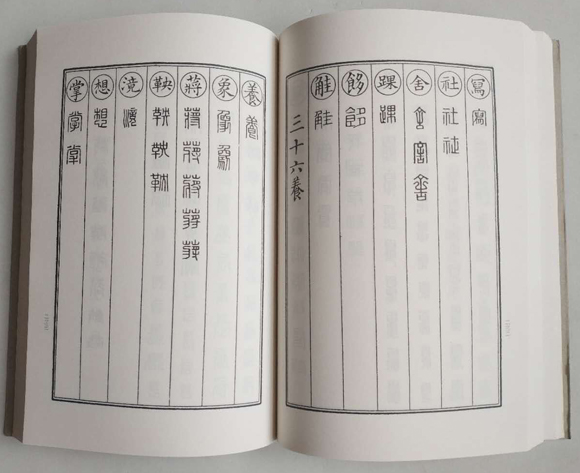 寫寫
社社社
舍舍舍舍
踝踝
三十六養
養養
象象象
蔣蔣蔣蔣蔣蔣
鞅鞅鞅鞅
想想
掌掌掌